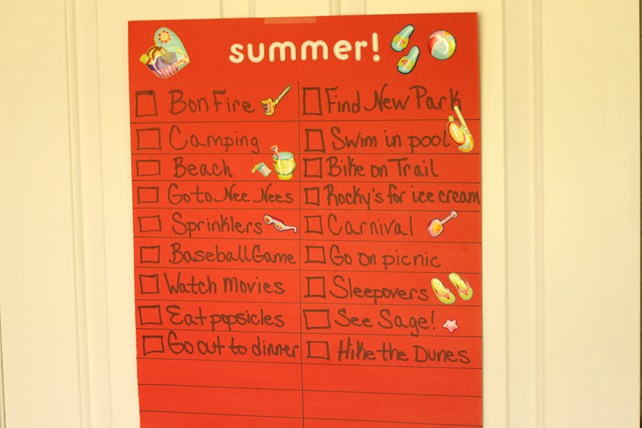 summer!
BonFire
Find New Park
Camping
Swim in pool
Beach
Bike on Trail
Go to Nee Nees
Rocky's for ice cream
Sprinklers
Carnival
Baseball Game
Go on picnic
Watch Movies
Sleepovers
Eat popsicles
See Sage!
Go out to dinner
Hike the Dunes